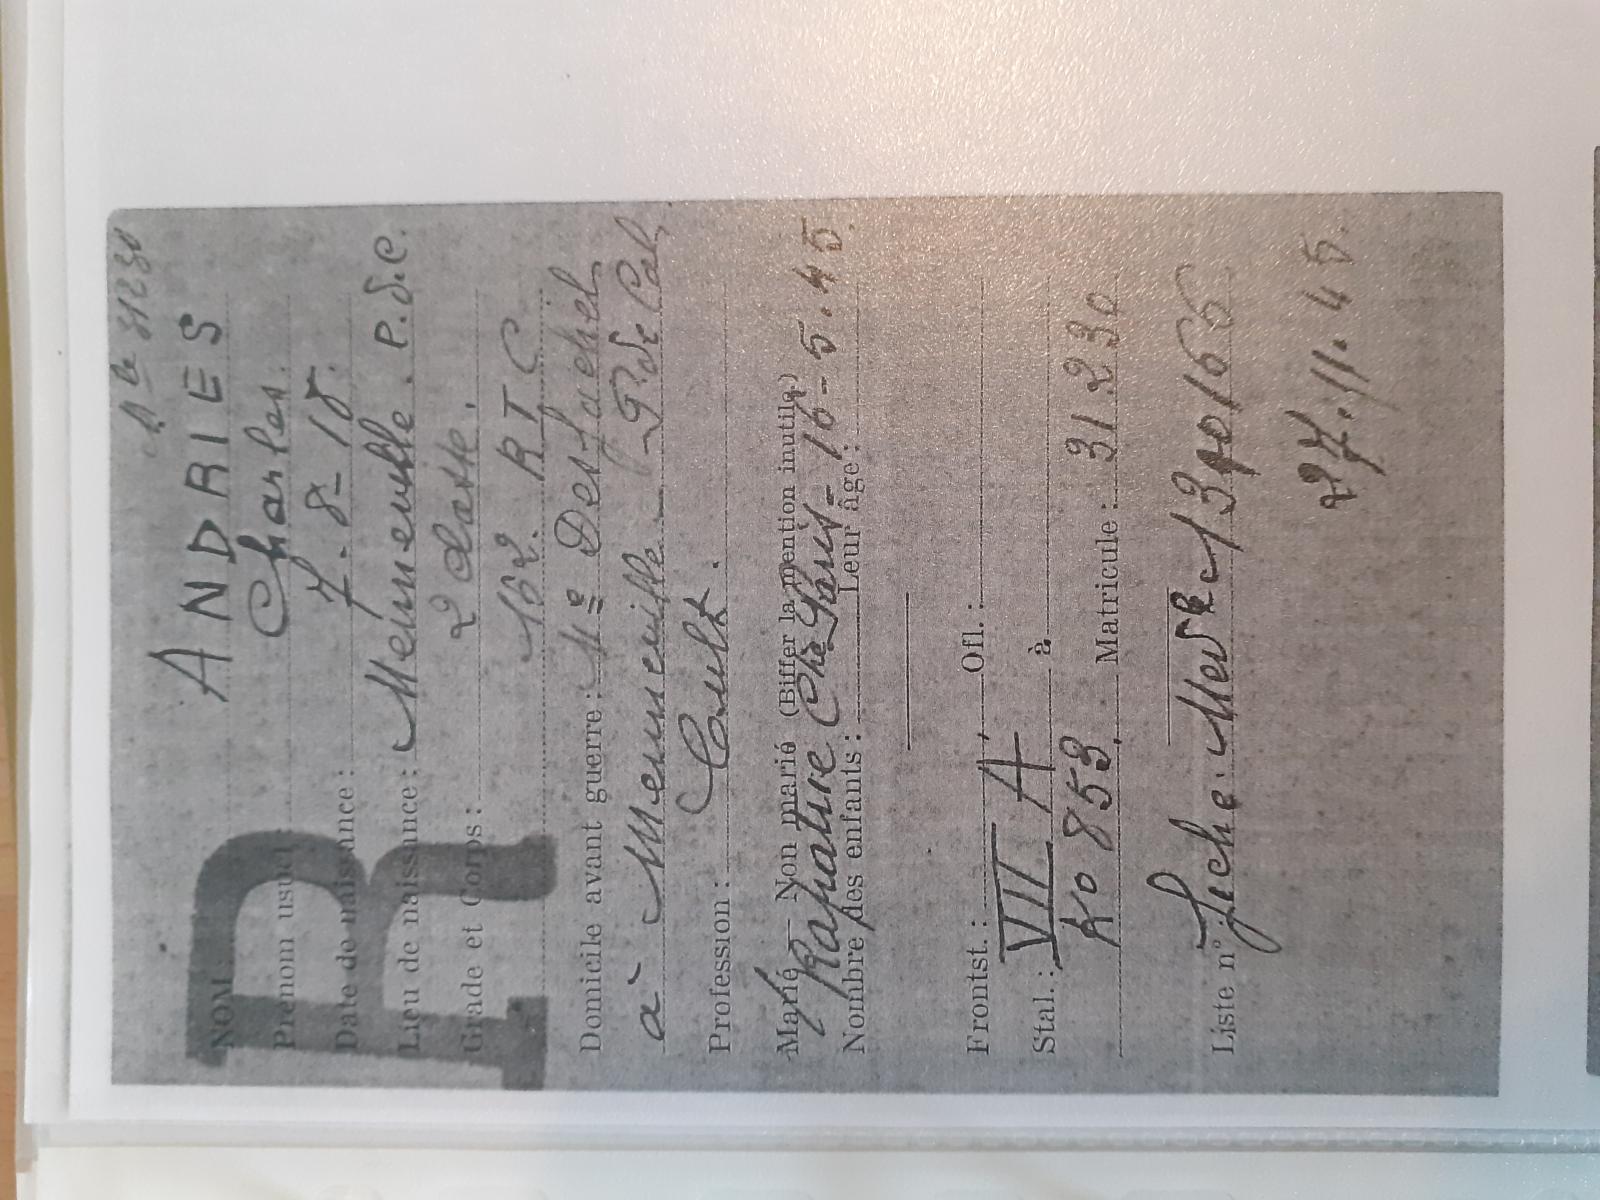 Nº le 31230
R
NOM : ANDRIES
Prénom usuel : Charles.
Date de naissance : 7-8-18.
Lieu de naissance : P.de C.
Grade et Corps : 2 classe.
162. R I C
Domicile avant guerre :
à - P. de Cal
Profession : Cult.
Marié — Non marié (Biffer la mention inutile)
Rapatrié Paris - 16-5.45.
Nombre des enfants : Leur âge :
Frontst. : Ofl. :
Stal. : VII A à
Ko 853. Matricule : 31230
Liste nº Fiche 1340166
27.11.45.